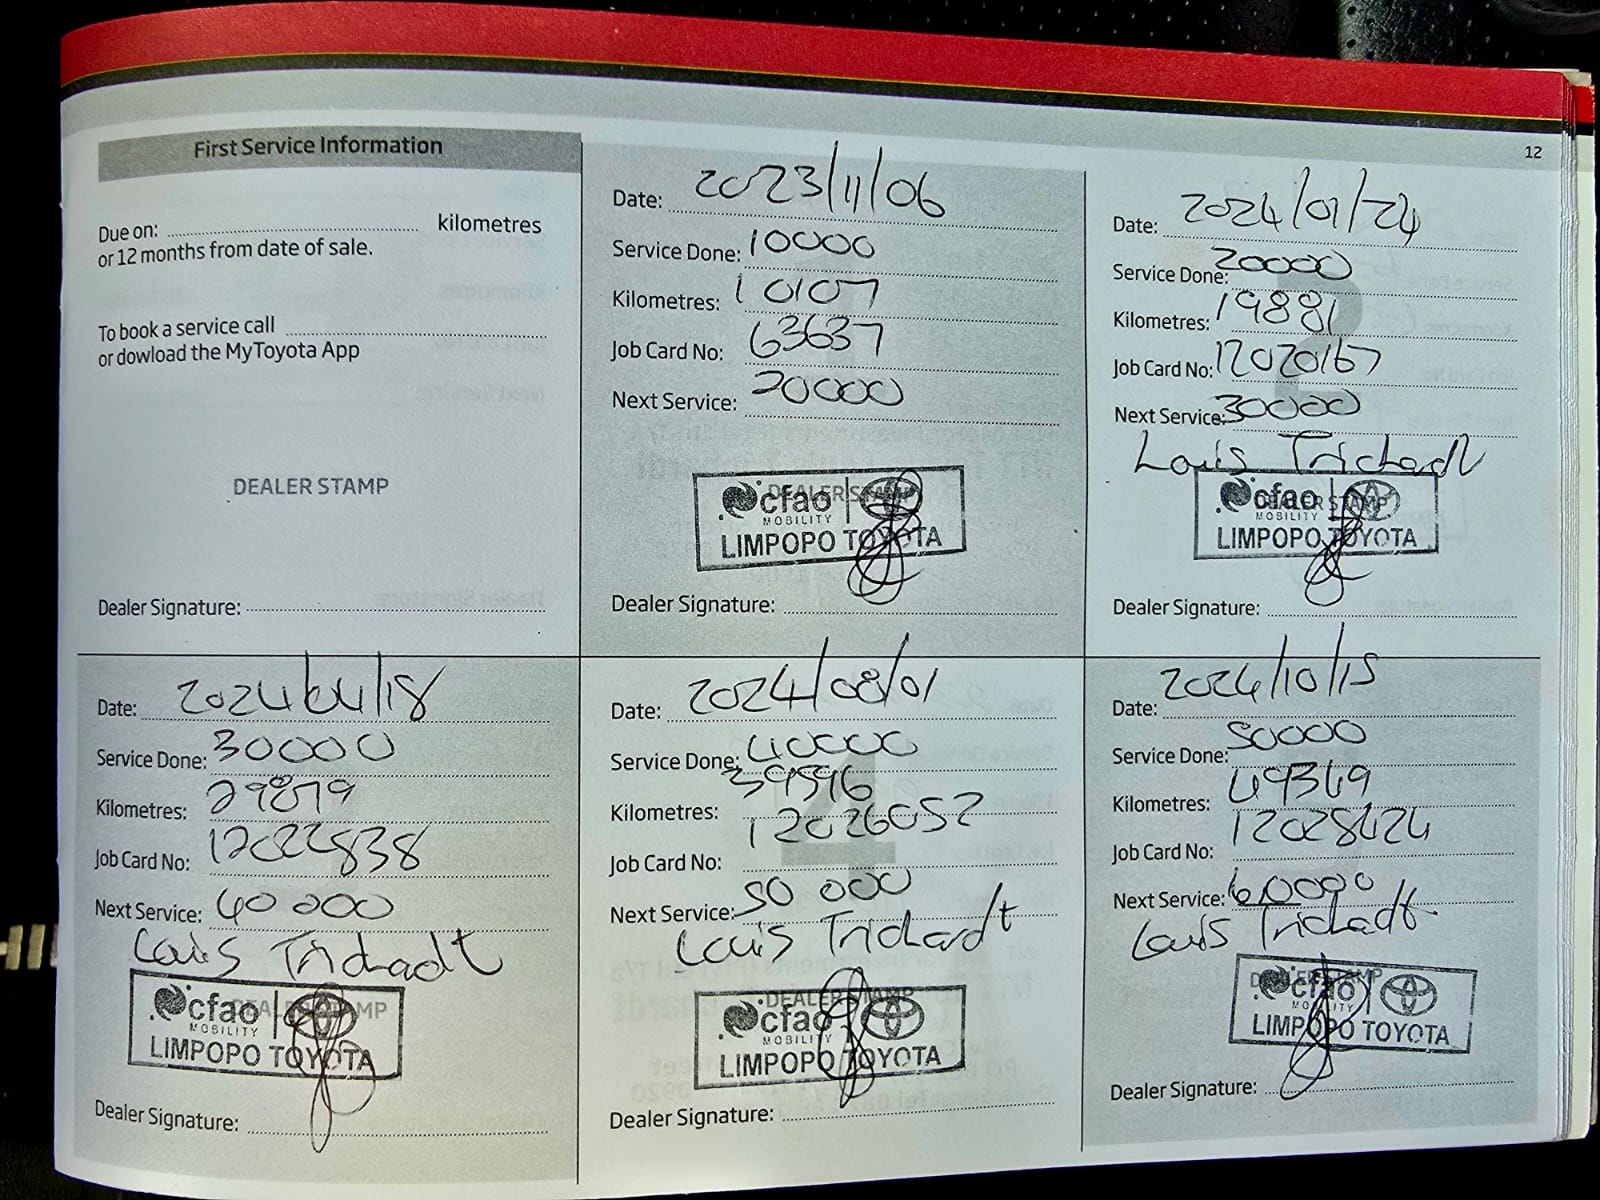 12
First Service Information
Due on: kilometres
or 12 months from date of sale.
To book a service call
or dowload the MyToyota App
DEALER STAMP
Dealer Signature:
Date: 2023/11/06
Service Done: 10000
Kilometres: 10107
Job Card No: 63637
Next Service: 20000
DEALER STAMP
cfao
MOBILITY
LIMPOPO TOYOTA
Dealer Signature:
Date: 2024/01/24
Service Done: 20000
Kilometres: 19881
Job Card No: 12020167
Next Service: 30000
Louis Trichardt
DEALER STAMP
cfao
MOBILITY
LIMPOPO TOYOTA
Dealer Signature:
Date: 2024/04/18
Service Done: 30000
Kilometres: 29879
Job Card No: 12022838
Next Service: 40 000
Louis Trichadt
DEALER STAMP
cfao
MOBILITY
LIMPOPO TOYOTA
Dealer Signature:
Date: 2024/08/01
Service Done: 40000
Kilometres: 39596
Job Card No: 12026052
Next Service: 50 000
Louis Trichardt
DEALER STAMP
cfao
MOBILITY
LIMPOPO TOYOTA
Dealer Signature:
Date: 2024/10/15
Service Done: 50000
Kilometres: 49369
Job Card No: 12028424
Next Service: 60000
Louis Trichadt
DEALER STAMP
cfao
MOBILITY
LIMPOPO TOYOTA
Dealer Signature: